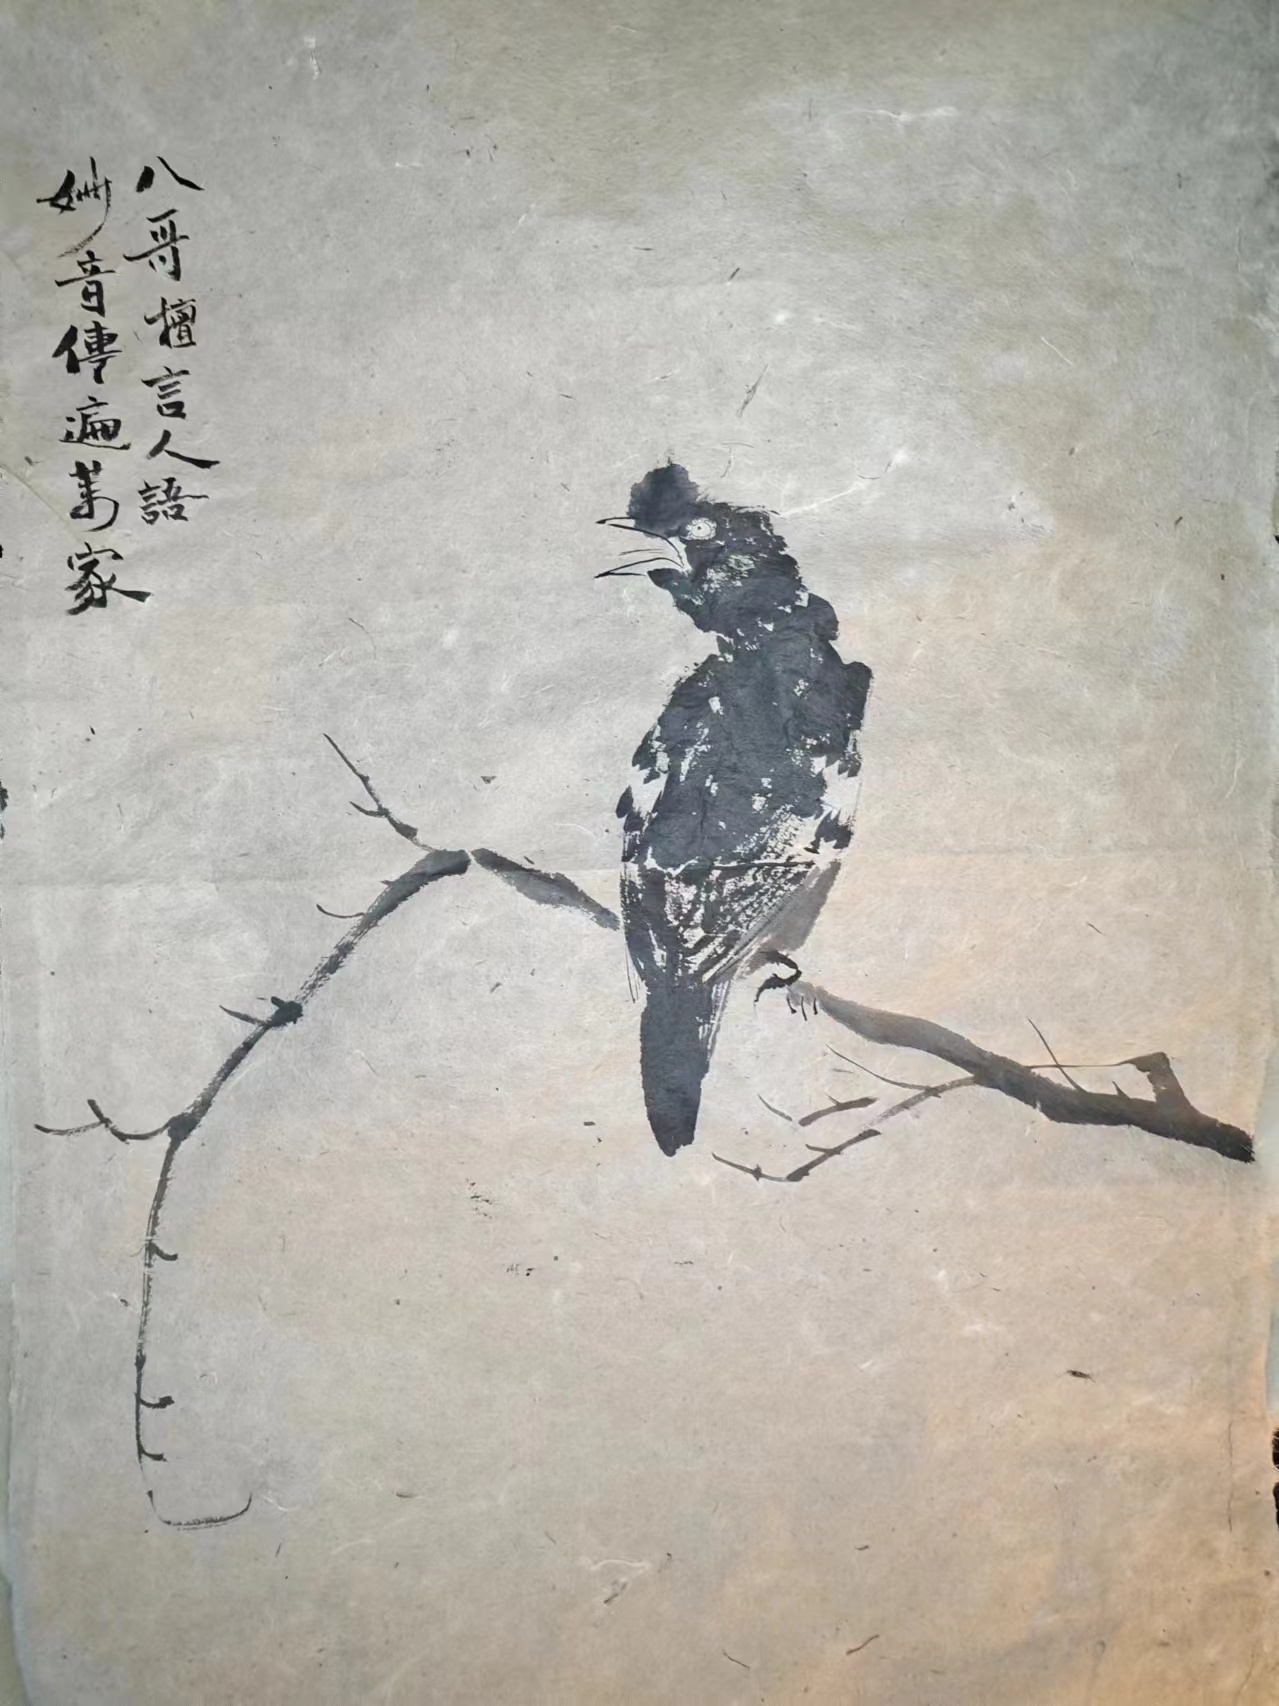 八哥擅言人語
妙音傳遍萬家